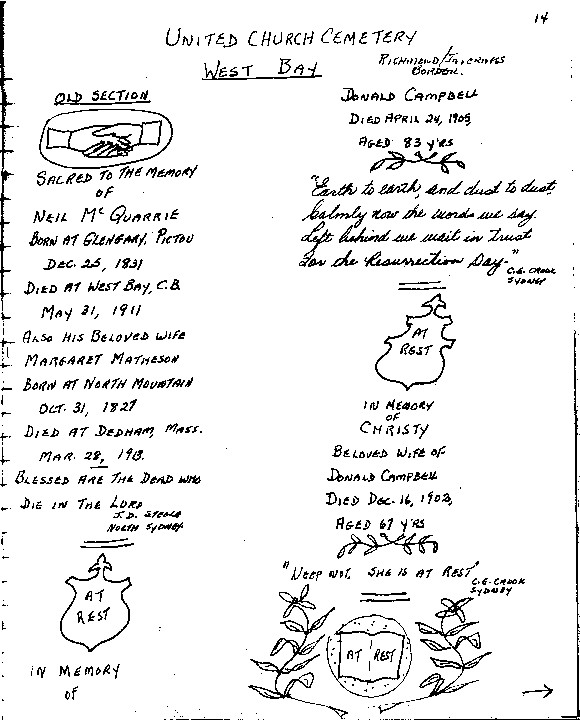 14
UNITED CHURCH CEMETERY
WEST BAY
RICHMOND/INVERNESS
BORDER.
OLD SECTION
SACRED TO THE MEMORY
OF
NEIL Mc QUARRIE
BORN AT GLENGARY, PICTOU
DEC. 25, 1831
DIED AT WEST BAY, C.B.
MAY 31, 1911
ALSO HIS BELOVED WIFE
MARGARET MATHESON
BORN AT NORTH MOUNTAIN
OCT. 31, 1827
DIED AT DEDHAM, MASS.
MAR. 28, 1913.
BLESSED ARE THE DEAD WHO
DIE IN THE LORD
J.D. STEELE
NORTH SYDNEY
AT
REST
IN MEMORY
OF
DONALD CAMPBELL
DIED APRIL 24, 1905,
AGED 83 YRS
"Earth to earth, and dust to dust,
Calmly now the words we say.
Left behind we wait in Trust
For the Resurrection Day."
C.E. CROOK
SYDNEY
AT
REST
IN MEMORY
OF
CHRISTY
BELOVED WIFE OF
DONALD CAMPBELL
DIED DEC. 16, 1902,
AGED 67 YRS
"WEEP NOT, SHE IS AT REST"
C.E. CROOK
SYDNEY
AT REST